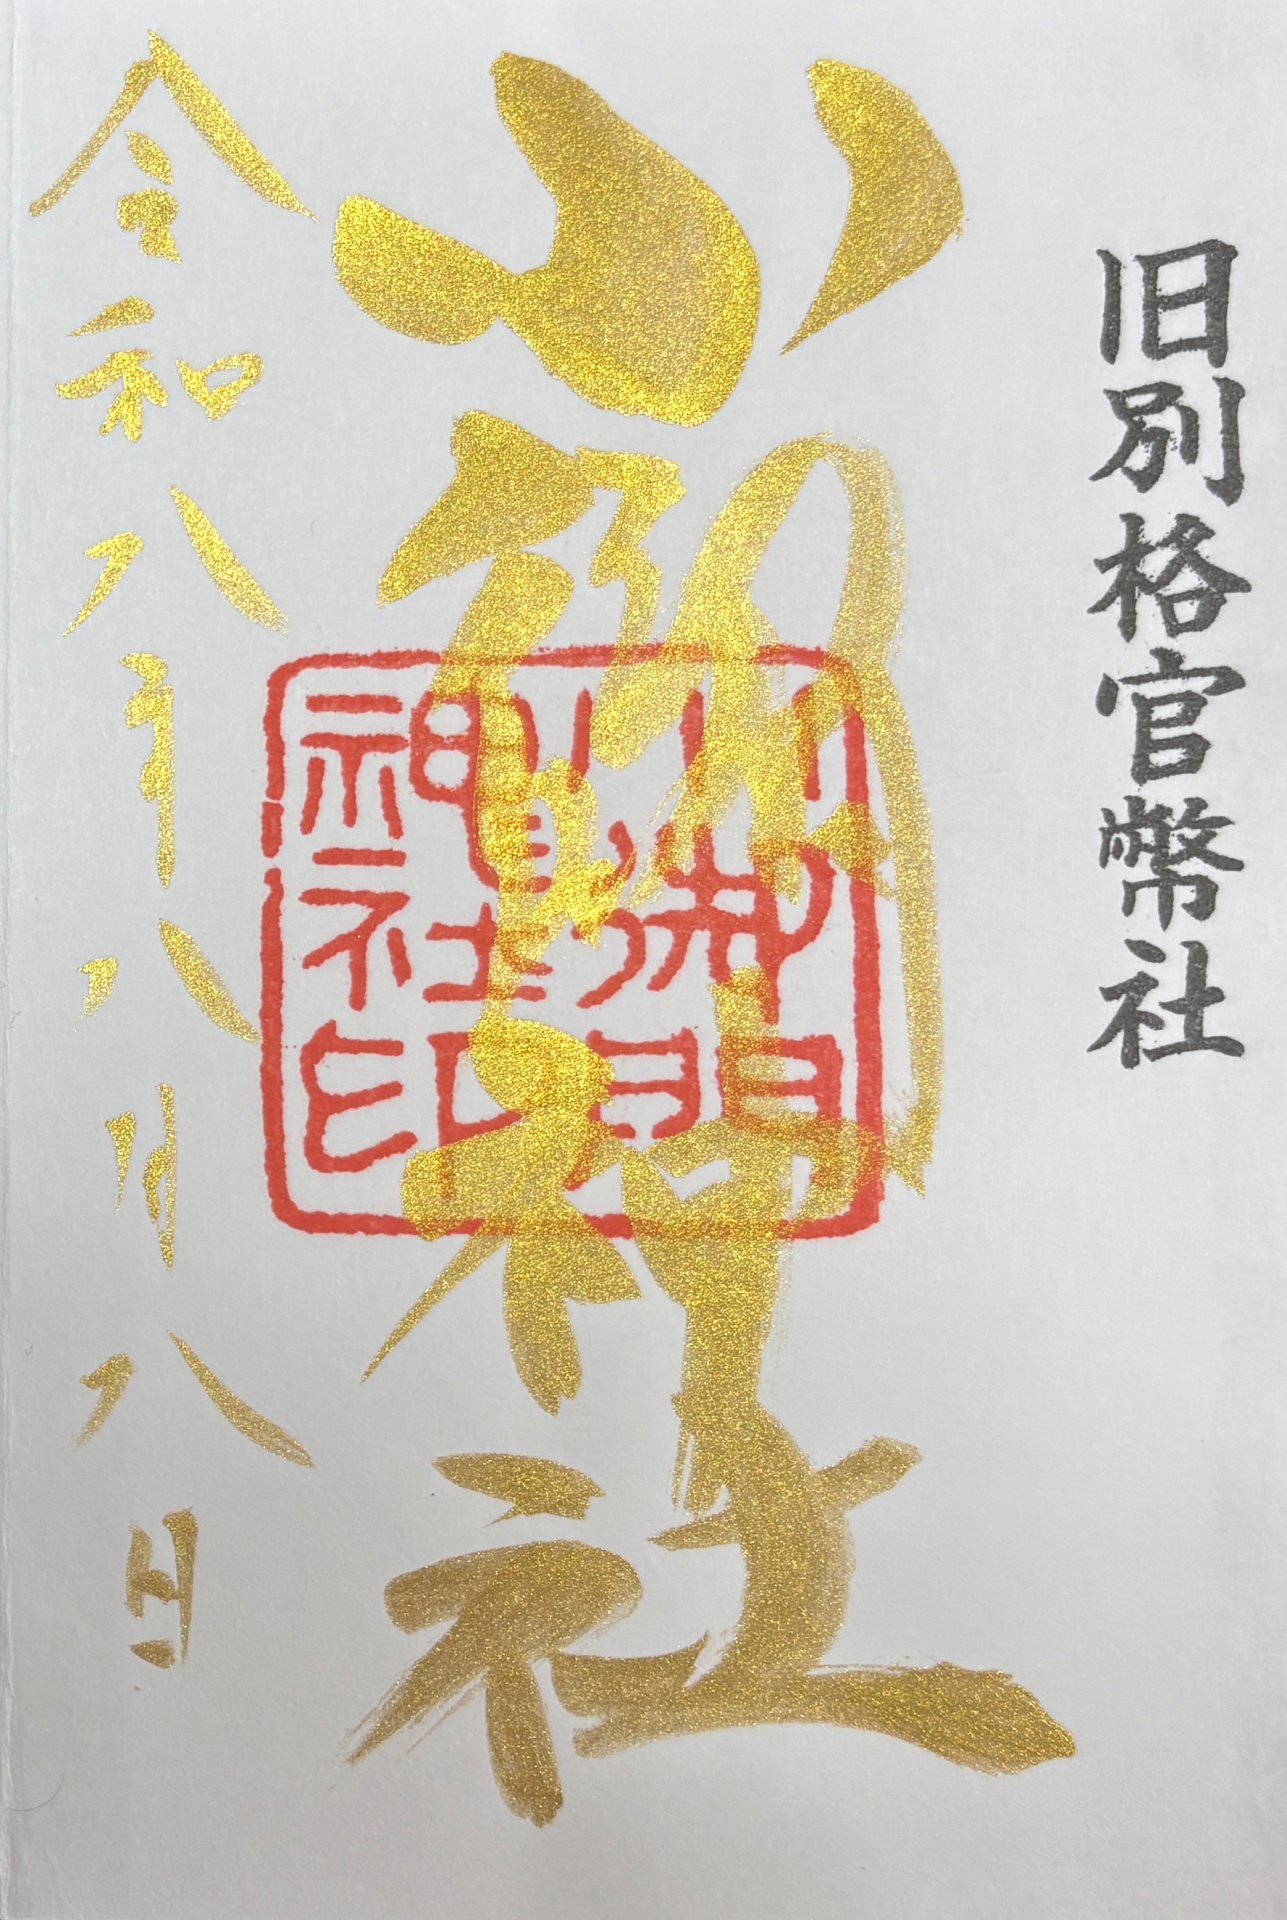 旧別格官幣社
小御門神社
小御門
神社印
令和八年八月八日